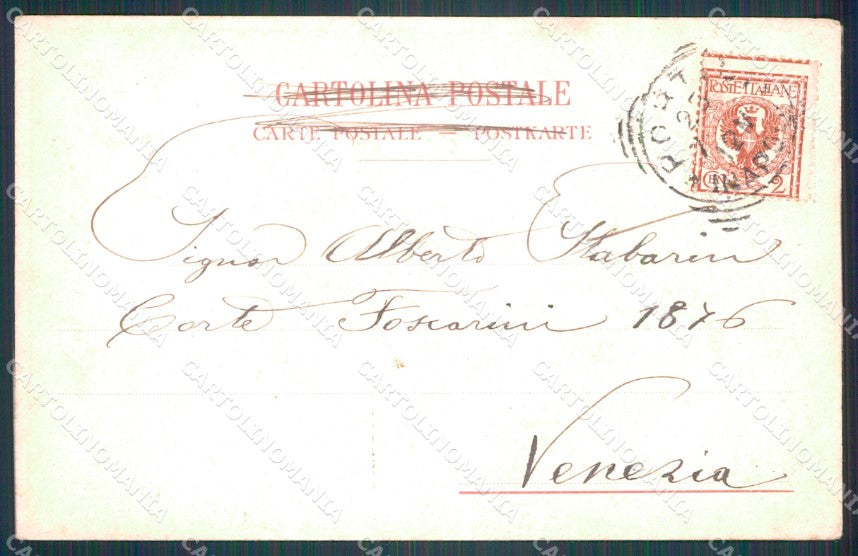 CARTOLINA POSTALE
CARTE POSTALE — POSTKARTE
POSTE ITALIANE
2
Signor Alberto Stabarin
Corte Foscarini 1876
Venezia
CARTOLINOMANIA